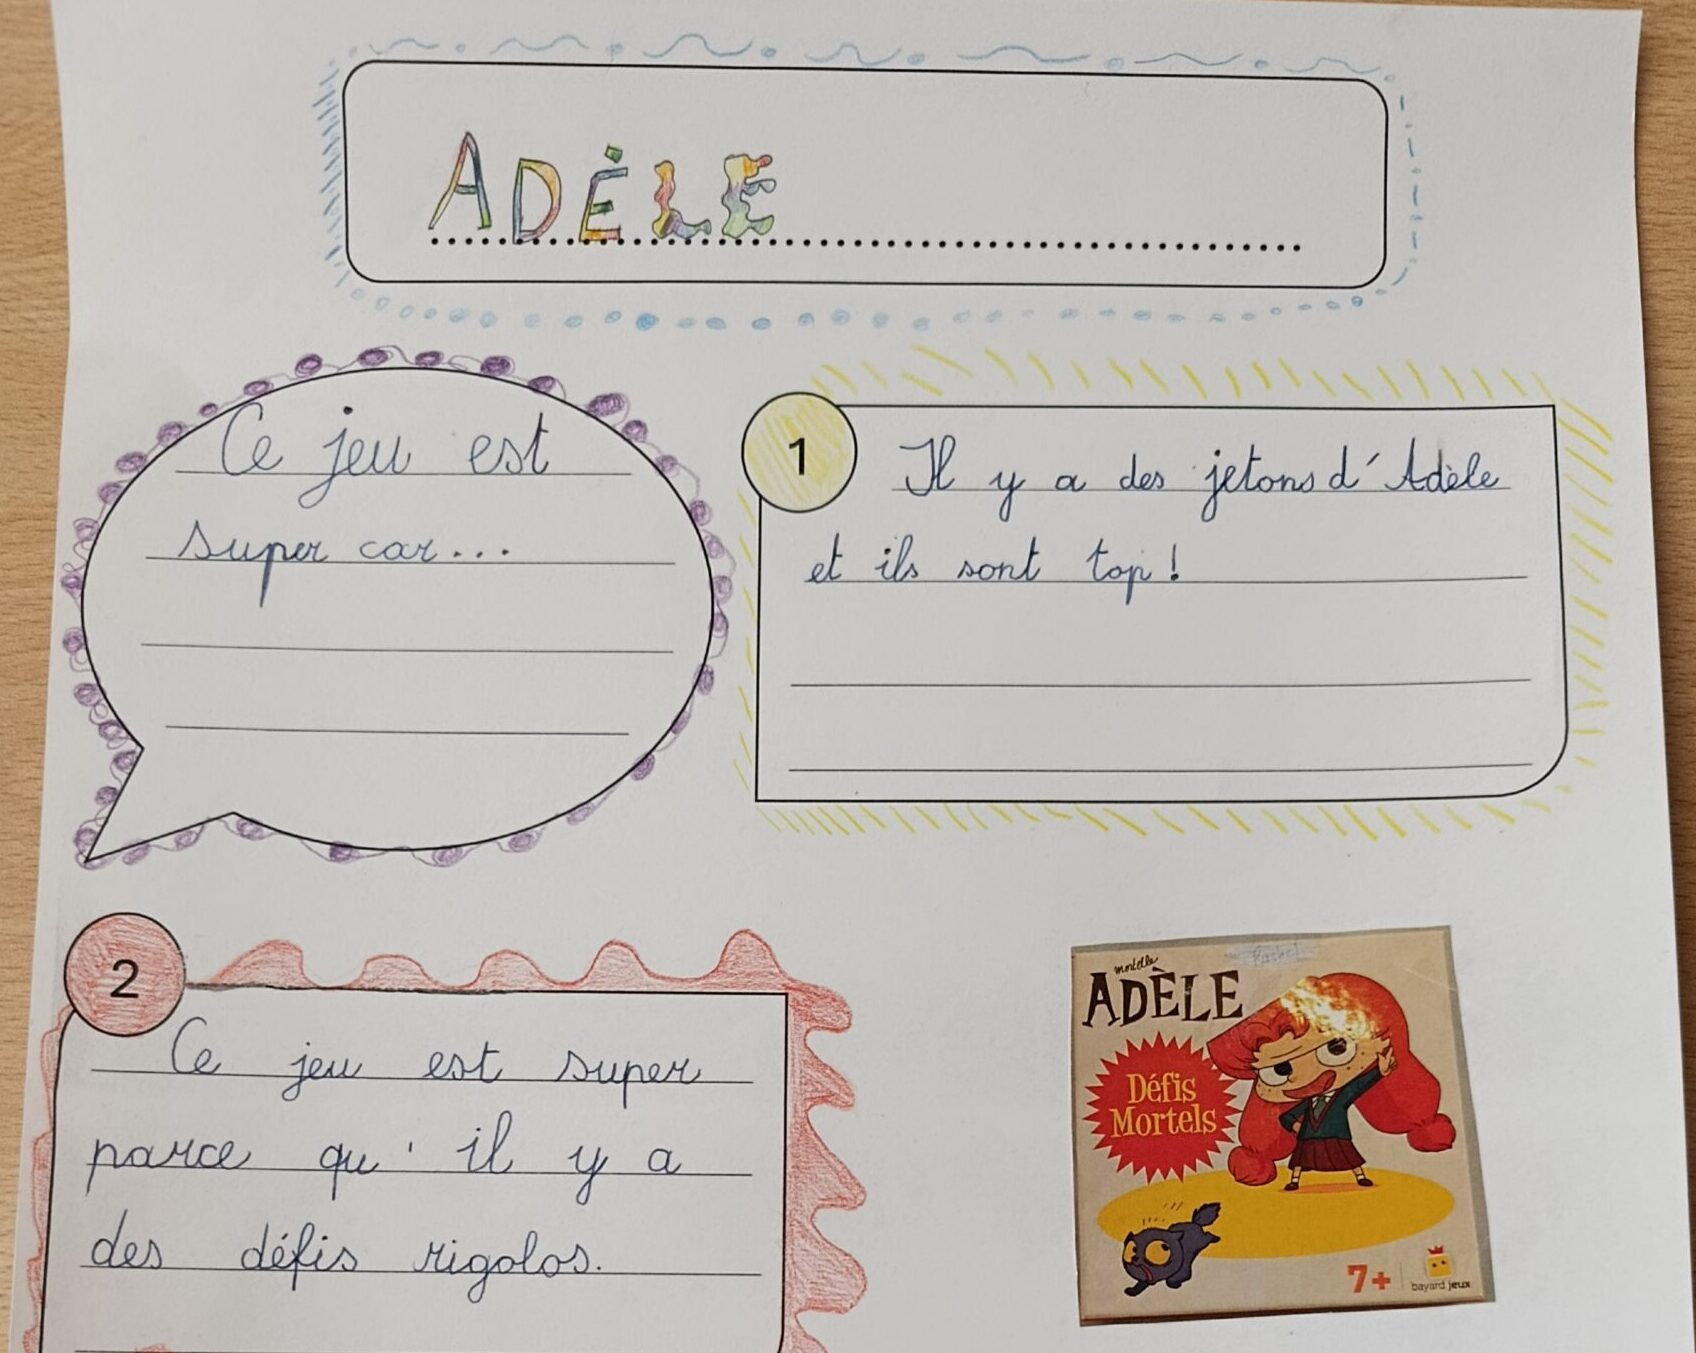 ADÈLE
Ce jeu est
super car...
1
Il y a des jetons d'Adèle
et ils sont top!
2
Ce jeu est super
parce qu'il y a
des défis rigolos.
mortelle
ADÈLE
Défis
Mortels
7+
bayard jeux